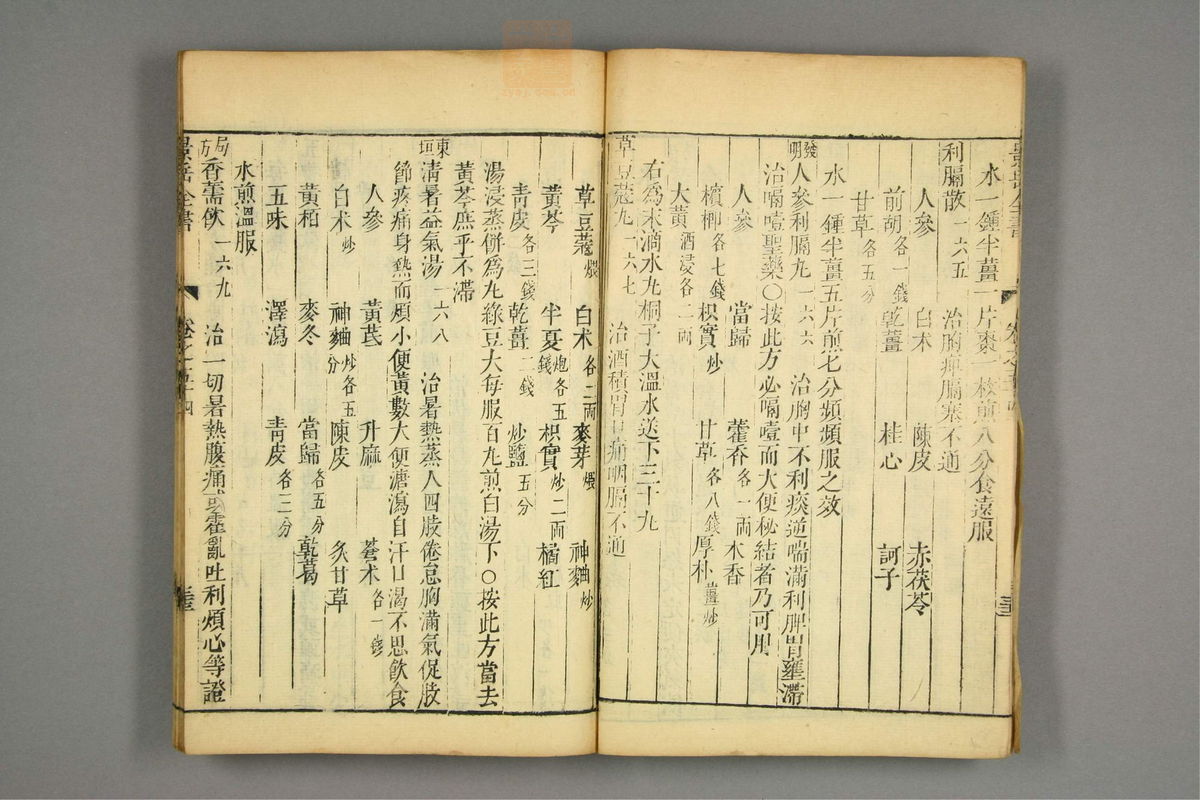 水一鍾半薑一片棗一枚煎八分食遠服
利膈散一六五　治胸痺膈塞不通
人參　白术　陳皮　赤茯苓
前胡各一錢　乾薑　桂心　訶子
甘草各五分
水一鍾半薑五片煎七分頻頻服之效
發明人參利膈丸一六六　治胸中不利痰逆喘滿利脾胃壅滯
治噎聖藥○按此方必噎而大便秘結者乃可用
人參　當歸　藿香各一兩　木香
檳榔各七錢　枳實炒　甘草各八錢　厚朴薑炒
大黃酒浸各二兩
右爲末滴水丸桐子大溫水送下三十丸
草豆蔻丸一六七　治酒積胃中痛咽膈不通
草豆蔻煨　白术各二兩　麥芽煨　神麯炒
黃芩　半夏炮各五錢　枳實炒二兩　橘紅
靑皮各三錢　乾薑二錢　炒鹽五分
湯浸蒸餅爲丸綠豆大每服百丸煎白湯下○按此方當去
黃芩庶乎不滯
東垣淸暑益氣湯一六八　治暑熱蒸人四肢倦怠胸滿氣促肢
節疼痛身熱而煩小便黃數大便溏瀉自汗口渴不思飲食
人參　黃芪　升麻　蒼术各一錢
白术炒　神麯炒各五分　陳皮　炙甘草
黃柏　麥冬　當歸各五分　乾葛
五味　澤瀉　靑皮各二分
水煎溫服
局方香薷飲一六九　治一切暑熱腹痛或霍亂吐利煩心等證
景岳全書　卷之五十四